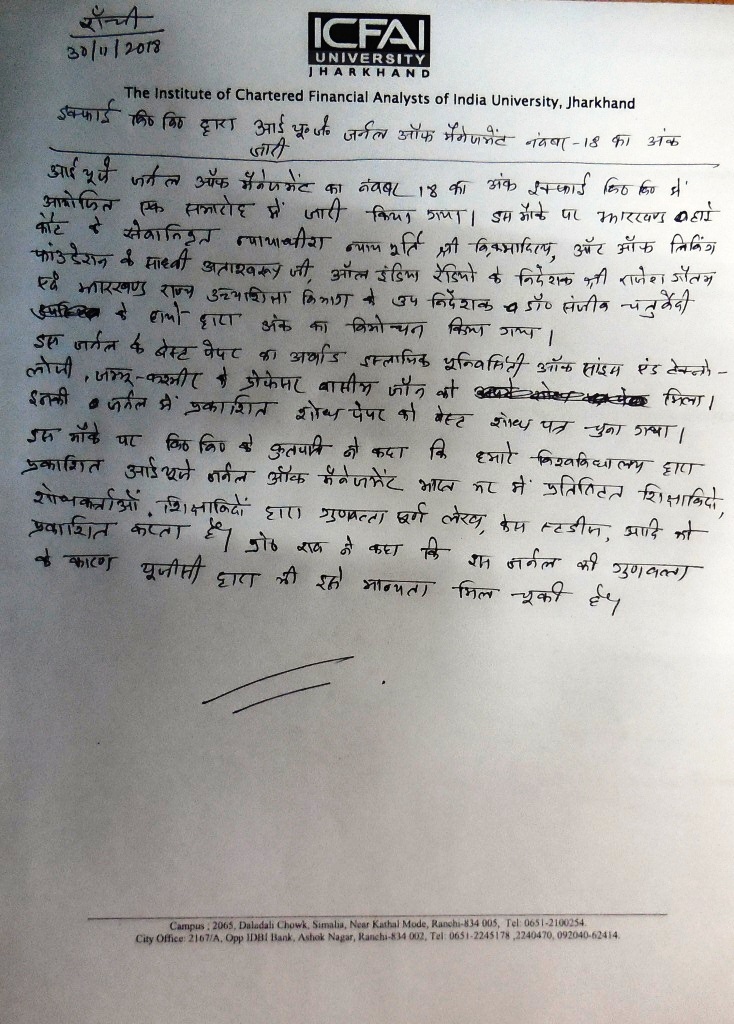 राँची
30/11/2018
ICFAI
UNIVERSITY
JHARKHAND
The Institute of Chartered Financial Analysts of India University, Jharkhand
इक्फाई वि० वि० द्वारा आई यू० जे० जर्नल ऑफ मैनेजमेंट नवंबर -18 का अंक
जारी
आई यूजे जर्नल ऑफ मैनेजमेंट का नवंबर 18 का अंक इक्फाई वि० वि० में
आयोजित एक समारोह में जारी किया गया। इस मौके पर झारखण्ड हाई
कोर्ट के सेवानिवृत न्यायाधीश न्याय मूर्ति श्री विक्रमादित्य, ऑर्ट ऑफ लिविंग
फांउडेशन के साध्वी जी, ऑल इंडिया रेडियो के निर्देशक श्री राजेश गौतम
एवं झारखण्ड राज्य उच्चशिक्षा विभाग के उप निर्देशक डॉ० संजीव चतुर्वेदी
के हाथो द्वारा अंक का विमोचन किया गया।
इस जर्नल के बेस्ट पेपर का अवार्ड इस्लामिक यूनिवर्सिटी ऑफ साइंस एंड टेक्नो-
लोजी, जम्मू-कश्मीर के प्रोफेसर वासीम जॉन को मिला।
इनकी जर्नल में प्रकाशित शोध पेपर को बेस्ट शोध पत्र चुना गया।
इस मौके पर वि० वि० के कुलपति ने कहा कि हमारे विश्वविधालय द्वारा
प्रकाशित आईयूजे जर्नल ऑफ मैनेजमेंट भारत भर में प्रतिष्ठित शिक्षाविदो,
शोधकर्ताओं, शिक्षाविदों द्वारा गुणवत्ता पूर्ण लेख, केस स्टडीज, आदि को
प्रकाशित करता है। प्रो० राव ने कहा कि इस जर्नल की गुणवत्ता
के कारण यूजीसी द्वारा भी इसे मान्यता मिल चूकी है।
Campus : 2065, Daladali Chowk, Simalia, Near Kathal Mode, Ranchi-834 005, Tel: 0651-2100254.
City Office: 2167/A, Opp IDBI Bank, Ashok Nagar, Ranchi-834 002, Tel: 0651-2245178 ,2240470, 092040-62414.